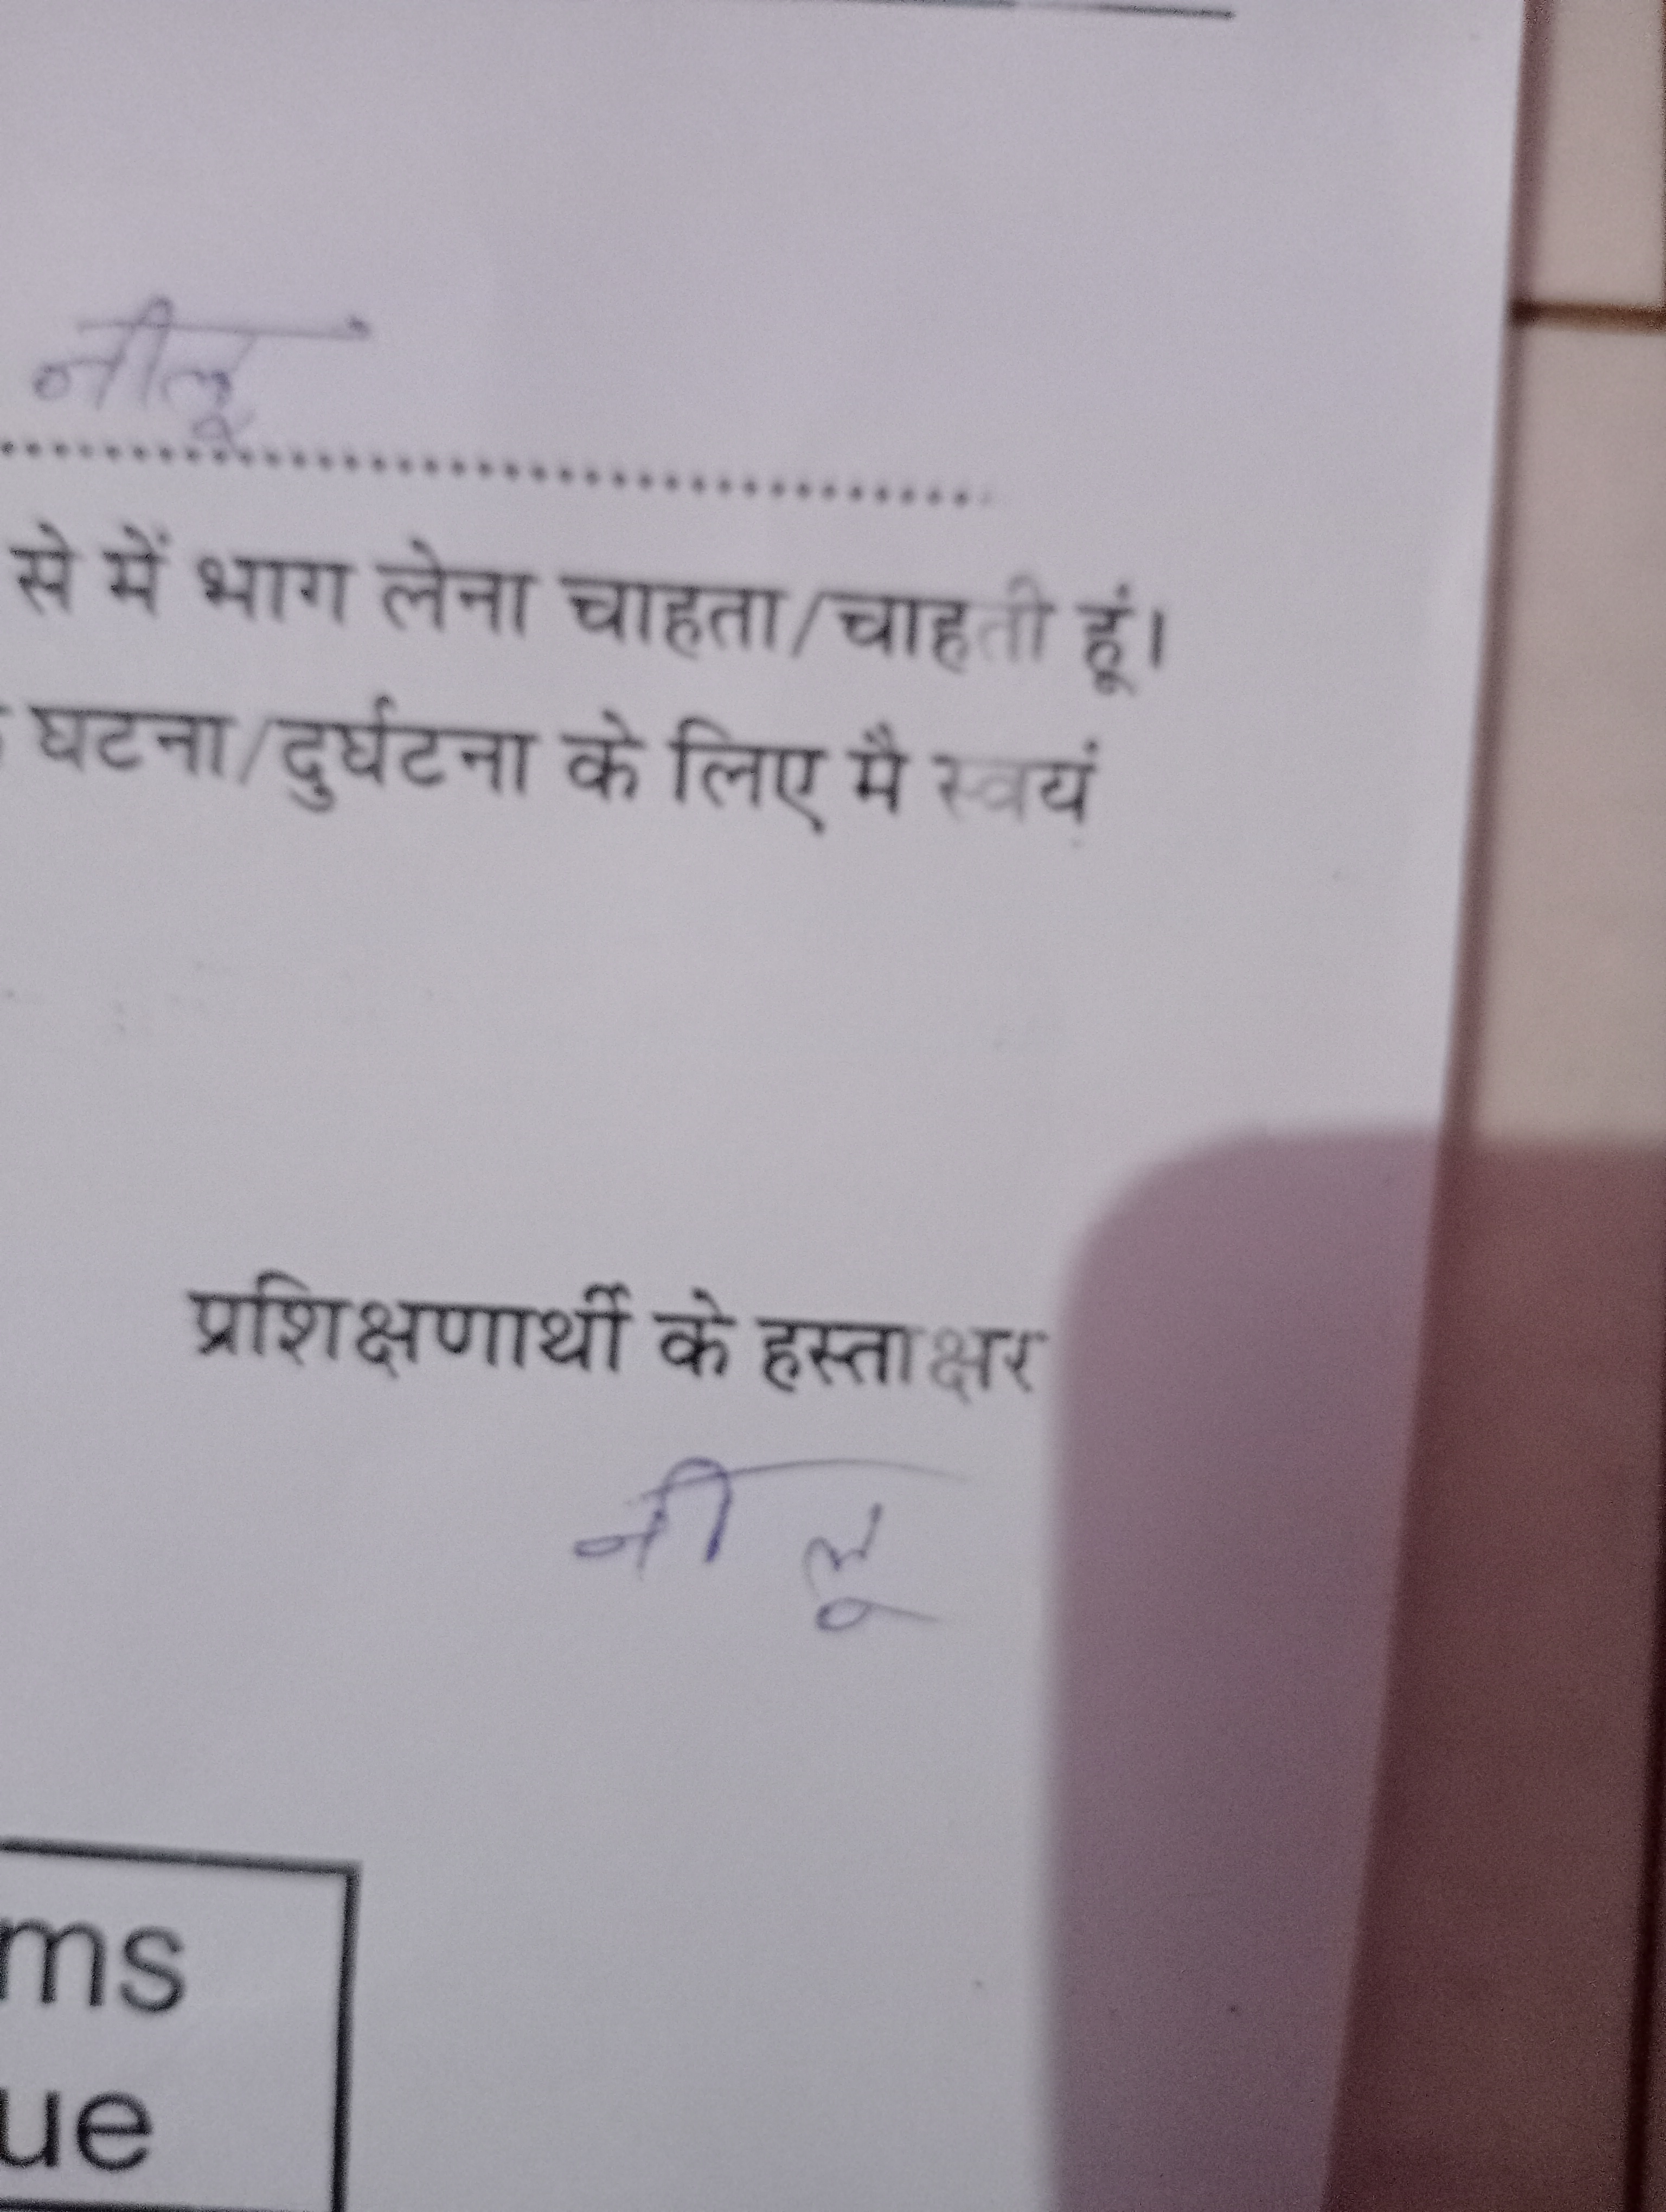 नीलू
से में भाग लेना चाहता/चाहती हूं।
घटना/दुर्घटना के लिए मै स्वयं
प्रशिक्षणार्थी के हस्ताक्षर
नीलू
ms
ue